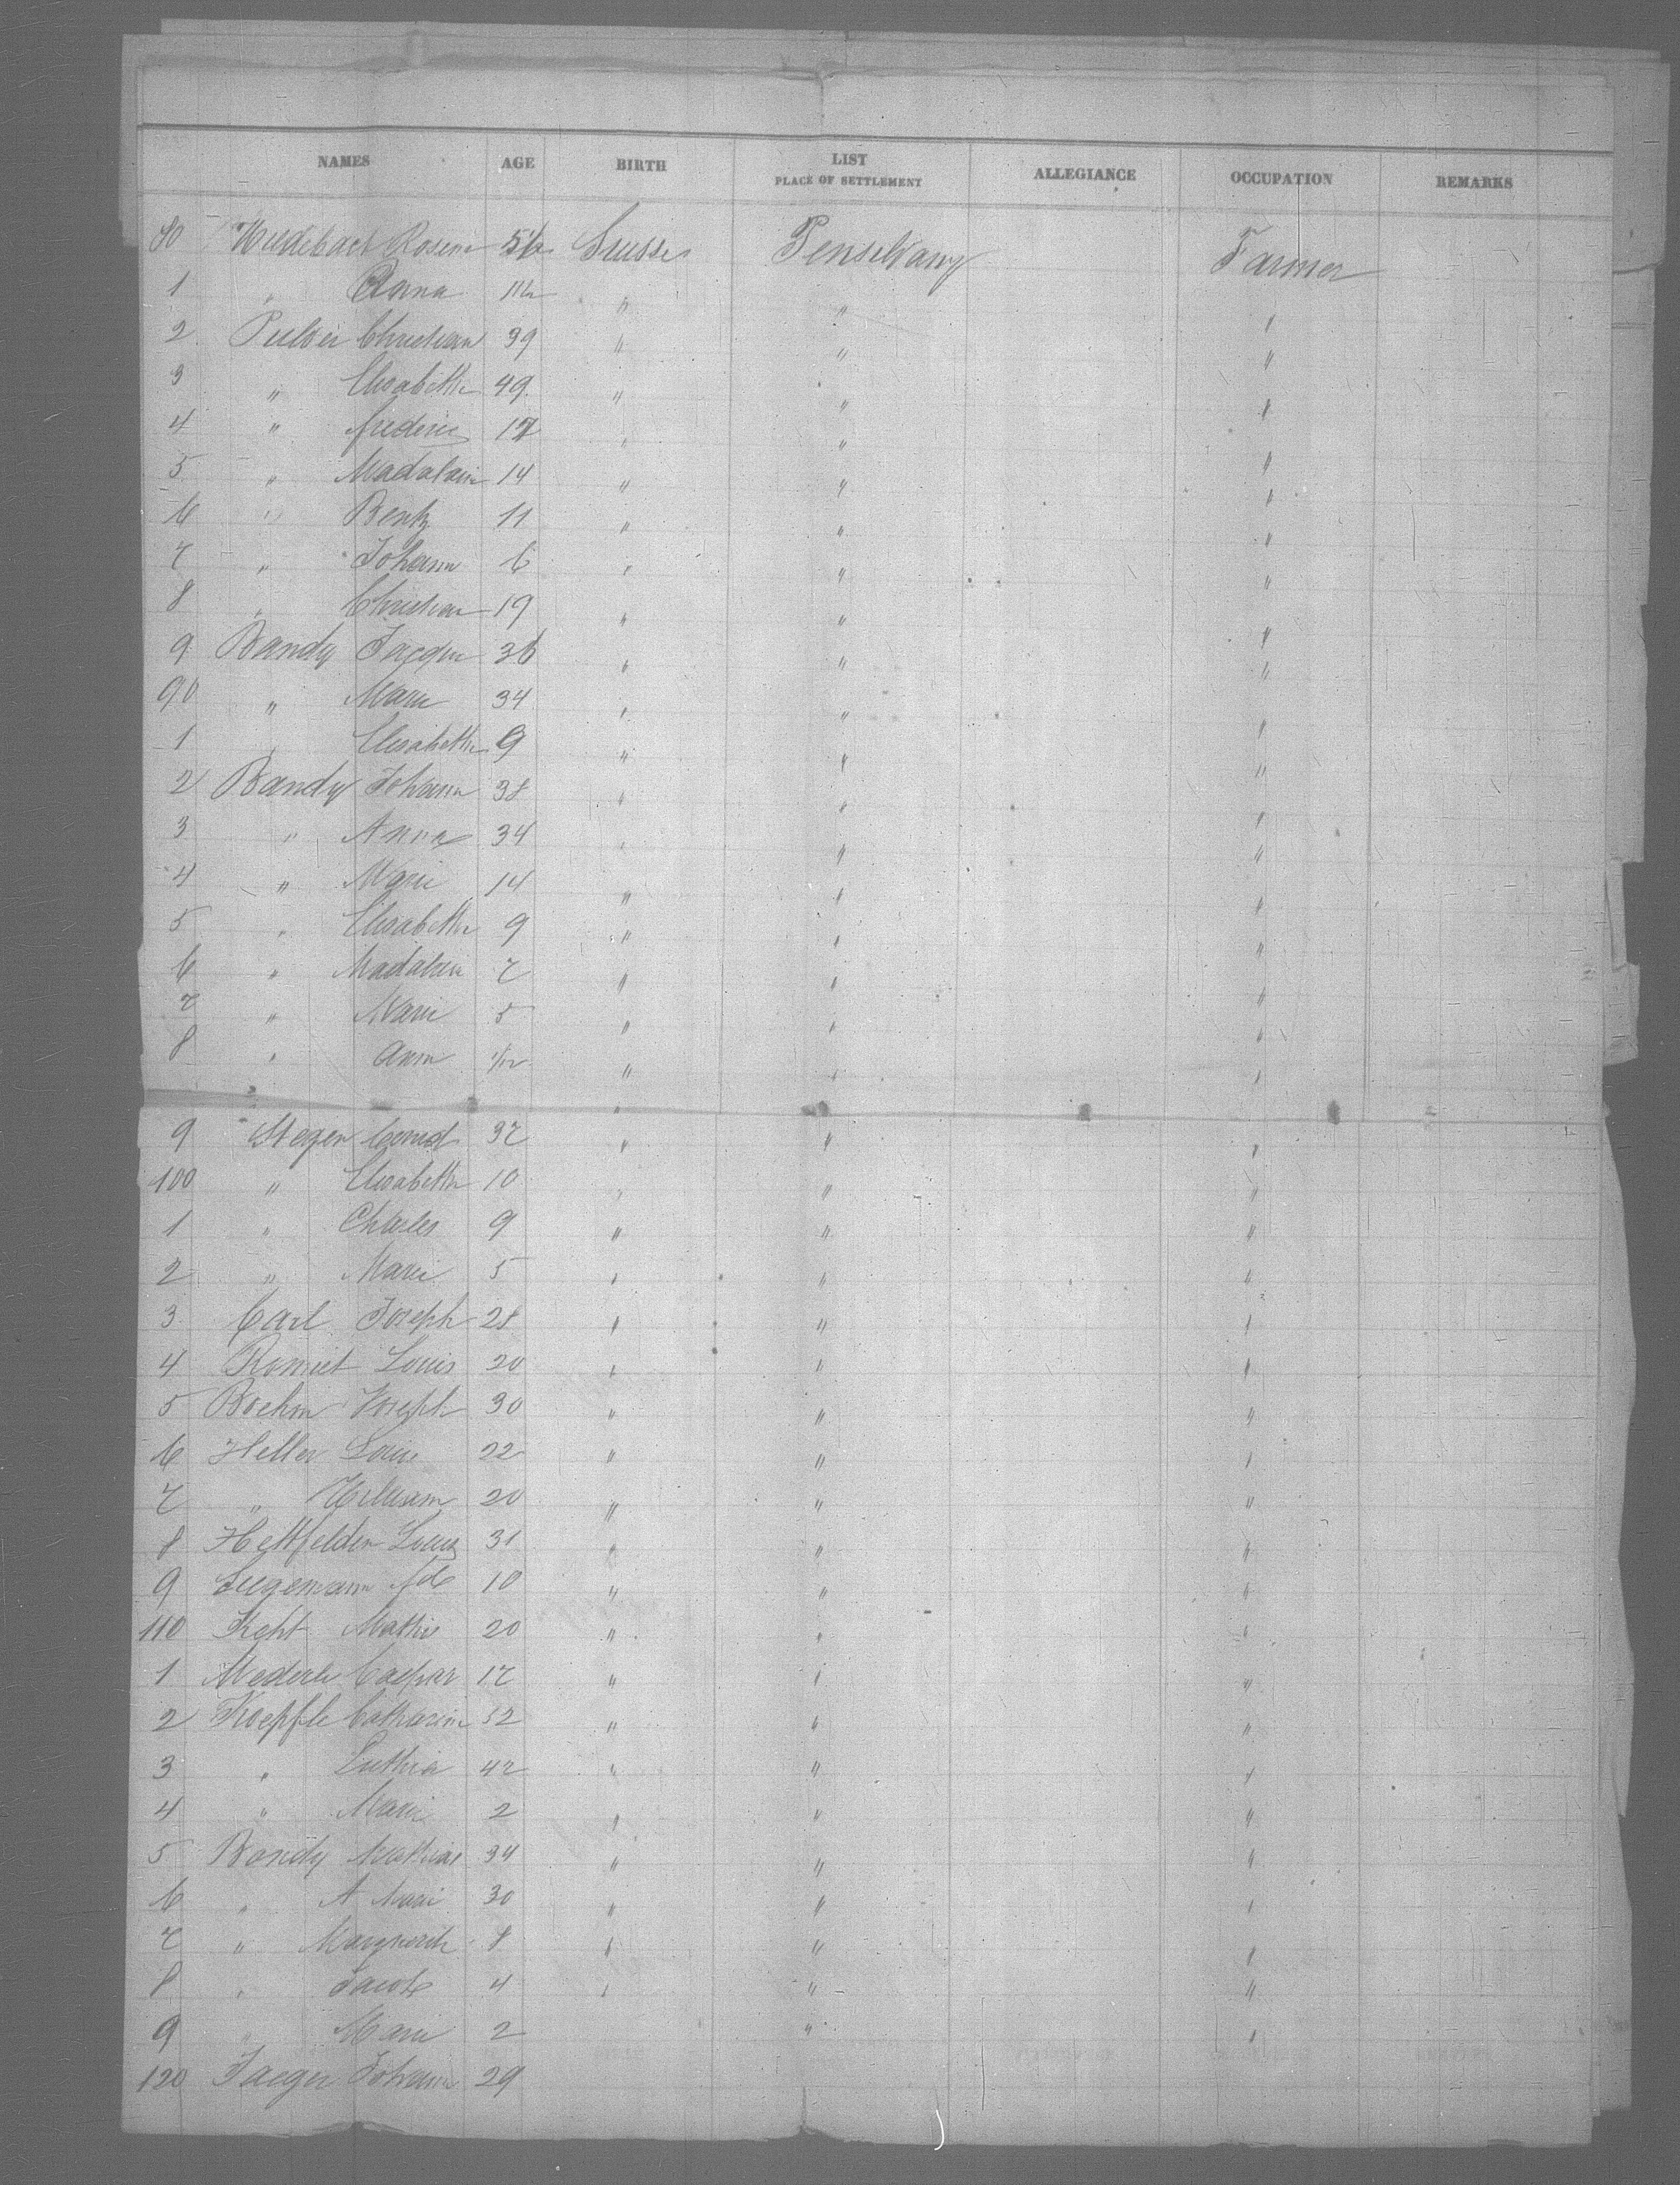 NAMES AGE BIRTH LIST PLACE OF SETTLEMENT ALLEGIANCE OCCUPATION REMARKS
80 Rosine Suisse Pensilvany Farmer
1 " Anna " " "
2 Pulver Christian 39 " " "
3 " Elisabeth 49 " " "
4 " frederic 17 " " "
5 " Madalain 14 " " "
6 " Bentz 11 " " "
7 " Johann 6 " " "
8 " Christian 19 " " "
9 Bandy Jacque 36 " " "
90 " Marie 34 " " "
1 " Elisabeth 9 " " "
2 Bandy Johann 38 " " "
3 " Anna 34 " " "
4 " Marie 14 " " "
5 " Elisabeth 9 " " "
6 " Madalain 7 " " "
7 " Marie 5 " " "
8 " Ann 1/12 " " "
9 Stegen 37 " " "
100 " Elisabeth 10 " " "
1 " Charles 9 " " "
2 " Marie 5 " " "
3 Carl Joseph 28 " " "
4 Romiet Louis 20 " " "
5 Boehm Joseph 30 " " "
6 Heller Louis 22 " " "
7 " William 20 " " "
8 Hettfelden Louis 31 " " "
9 10 " " "
110 Keht Mathis 20 " " "
1 Mederle Caspar 17 " " "
2 Koepfle Catharine 52 " " "
3 " 42 " " "
4 " Marie 2 " " "
5 Bandy Mathias 34 " " "
6 " A Marie 30 " " "
7 " Marguerite 8 " " "
8 " Jacob 4 " " "
9 " Marie 2 " "
120 Jaeger Johann 29